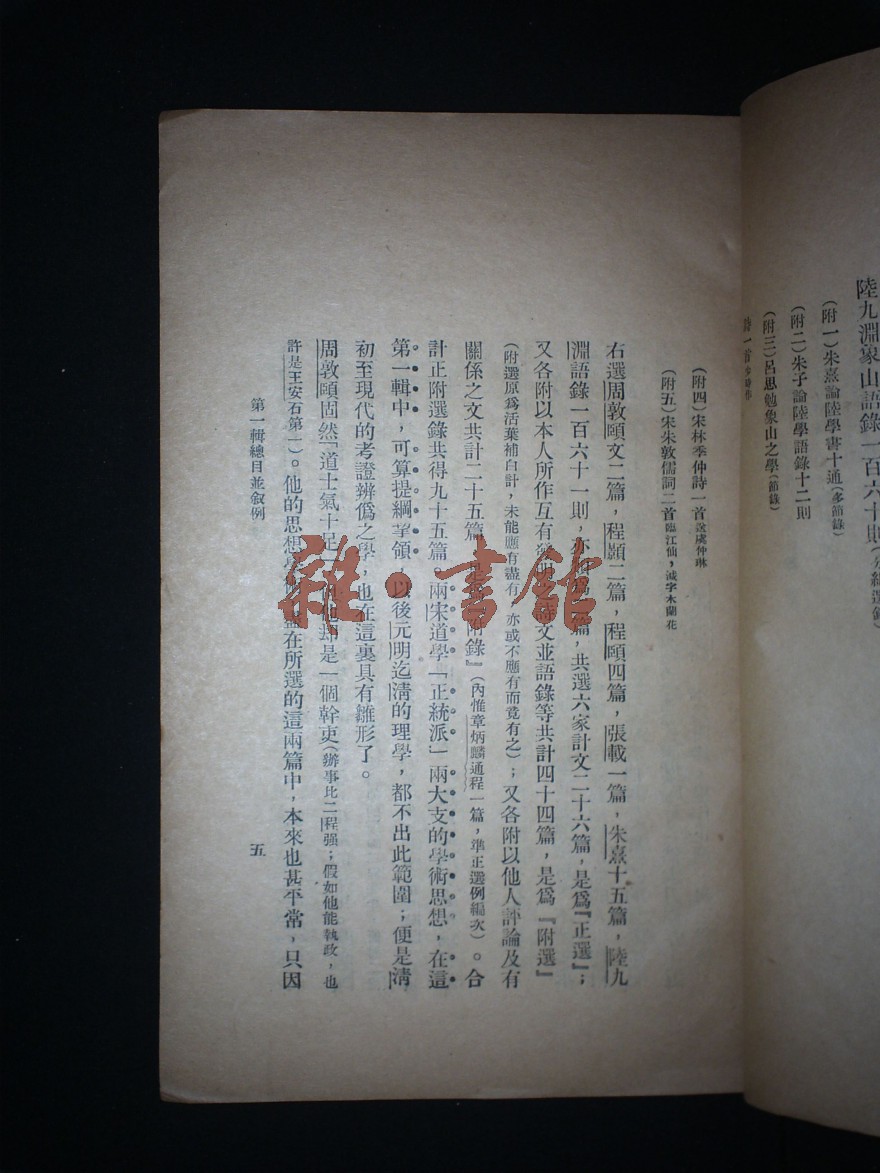 陸九淵象山語錄一百六十則
（附一）朱熹論陸學書十通（多節錄）
（附二）朱子論陸學語錄十二則
（附三）呂思勉象山之學（節錄）
（附四）宋林季仲詩一首送虞仲琳
（附五）宋朱敦儒詞二首臨江仙，減字木蘭花
右選周敦頤文二篇，程顥二篇，程頤四篇，張載一篇，朱熹十五篇，陸九
淵語錄一百六十一則，亦爲一篇，共選六家計文二十六篇，是爲『正選』；
又各附以本人所作互有發明詩文並語錄等共計四十四篇，是爲『附選』
（附選原爲活葉補白計，未能應有盡有，亦或不應有而竟有之）；又各附以他人評論及有
關係之文共計二十五篇，是附錄』（內惟章炳麟通程一篇，準正選例編次）。合
計正附選錄共得九十五篇。兩宋道學「正統派」兩大支的學術思想，在這
第一輯中，可算提綱挈領，以後元明迄淸的理學，都不出此範圍；便是淸
初至現代的考證辨僞之學，也在這裏具有雛形了。
周敦頤固然「道士氣十足」，他却是一個幹吏（辦事比二程强；假如他能執政，也
許是王安石第二）。他的思想盡在所選的這兩篇中，本來也甚平常，只因
第一輯總目並叙例
五
雜·書館